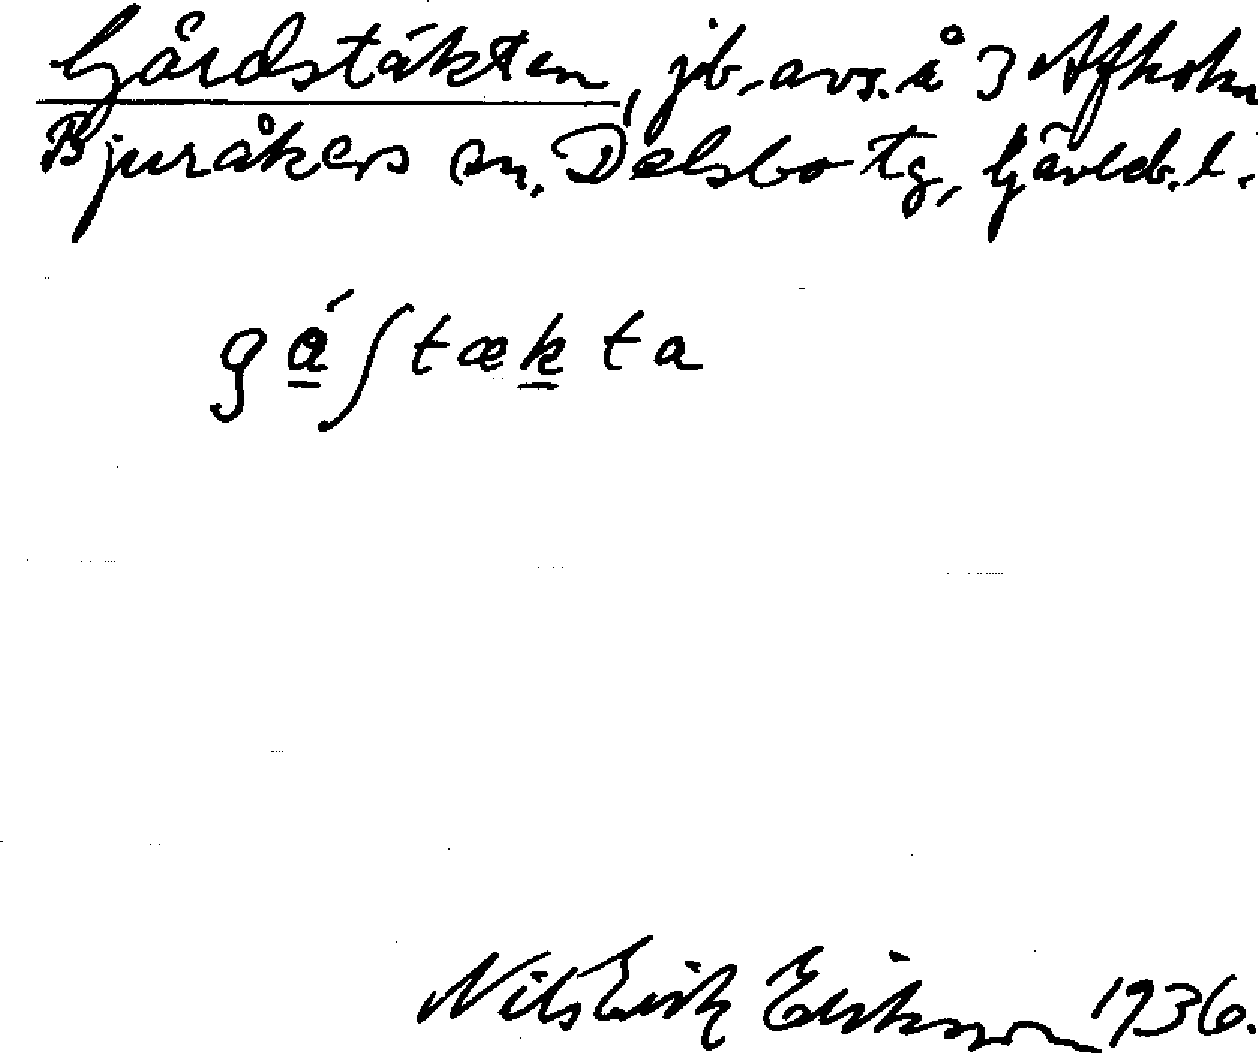 Gårdstäkten, jb.-avs. å 3 Afholm
Bjuråkers sn. Delsbo tg, Gävleb. l.
gáʃtækta
Nils Erik Erikson 1936.